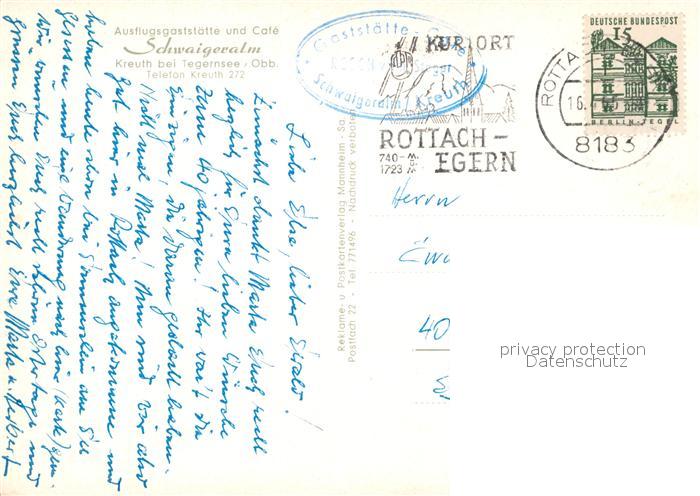 Ausflugsgaststätte und Café
Schwaigeralm
Kreuth bei Tegernsee / Obb.
Telefon Kreuth 272
Gaststätte - Café
Schwaigeralm / Kreuth
KURORT
ROTTACH-
EGERN
740-M.
1723 M.
ROTTA
16.
8183
DEUTSCHE BUNDESPOST
15
BERLIN-TEGEL
Reklame- u. Postkartenverlag Mannheim - Sa
Postfach 22 - Tel. 771496 - Nachdruck verboten
Liebe Else, lieber Ewald!
Zunächst dankt Marta Euch recht
herzlich für Eure lieben Wünsche
zum 40 jährigen! Ihr war't die
Einzigen, die daran gedacht haben.
Nun sind wir also
gut hier in Rottach angekommen und
haben heute schon bei Sonnenschein am See
gesessen und eine Wanderung nach hier (Karte) gem.
Wir wünschen Euch recht schöne Ostertage und
grüssen Euch herzlichst Eure Marta u. Herbert
Herrn
40
privacy protection
Datenschutz